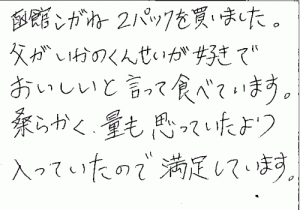 函館こがね 2パックを買いました。
父がいかのくんせいが好きで
おいしいと言って食べています。
柔らかく、量も思っていたより
入っていたので満足しています。